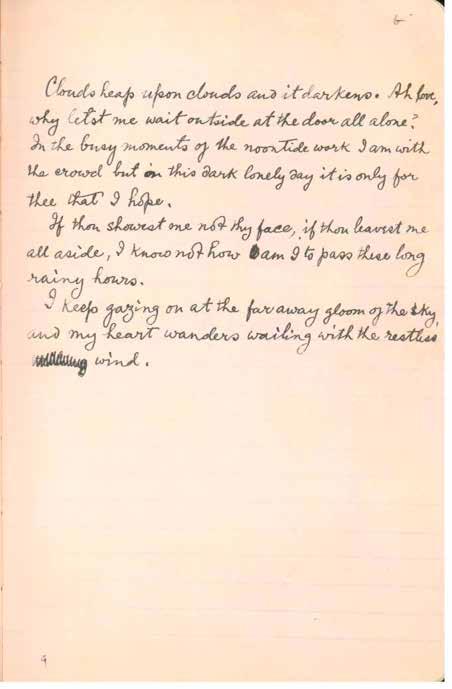 6
Clouds heap upon clouds and it darkens. Ah love,
why let'st me wait outside at the door all alone?
In the busy moments of the noontide work I am with
the crowd but on this dark lonely day it is only for
thee that I hope.
If thou showest me not thy face, if thou leavest me
all aside, I know not how am I to pass these long
rainy hours.
I keep gazing on at the far away gloom of the sky,
and my heart wanders wailing with the restless
wind.
9